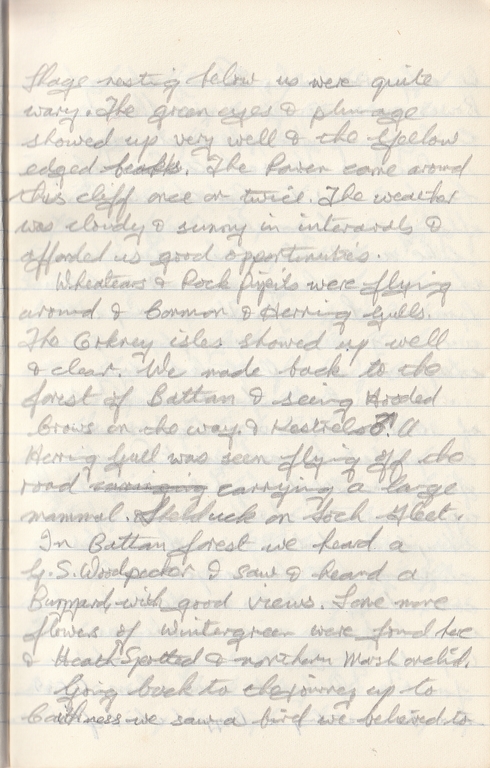 Shags nesting below us were quite
wary. The green eyes & plumage
showed up very well & the yellow
edged beaks. The Raven came around
this cliff once or twice. The weather
was cloudy & sunny in intervals &
afforded us good opportunities.
Wheatears & Rock Pipits were flying
around & Common & Herring Gulls.
The Orkney isles showed up well
& clear. We made back to the
forest of Battan & seeing Hooded
Crows on the way & Kestrel ♂. A
Herring Gull was seen flying off the
road carrying a large
mammal. Shelduck on Loch Fleet.
In Battan forest we heard a
G.S. Woodpecker & saw & heard a
Buzzard with good views. Some more
flowers of wintergreen were found here
& Heath Spotted & northern Marsh orchid.
Going back to the journey up to
Caithness we saw a bird we believed to